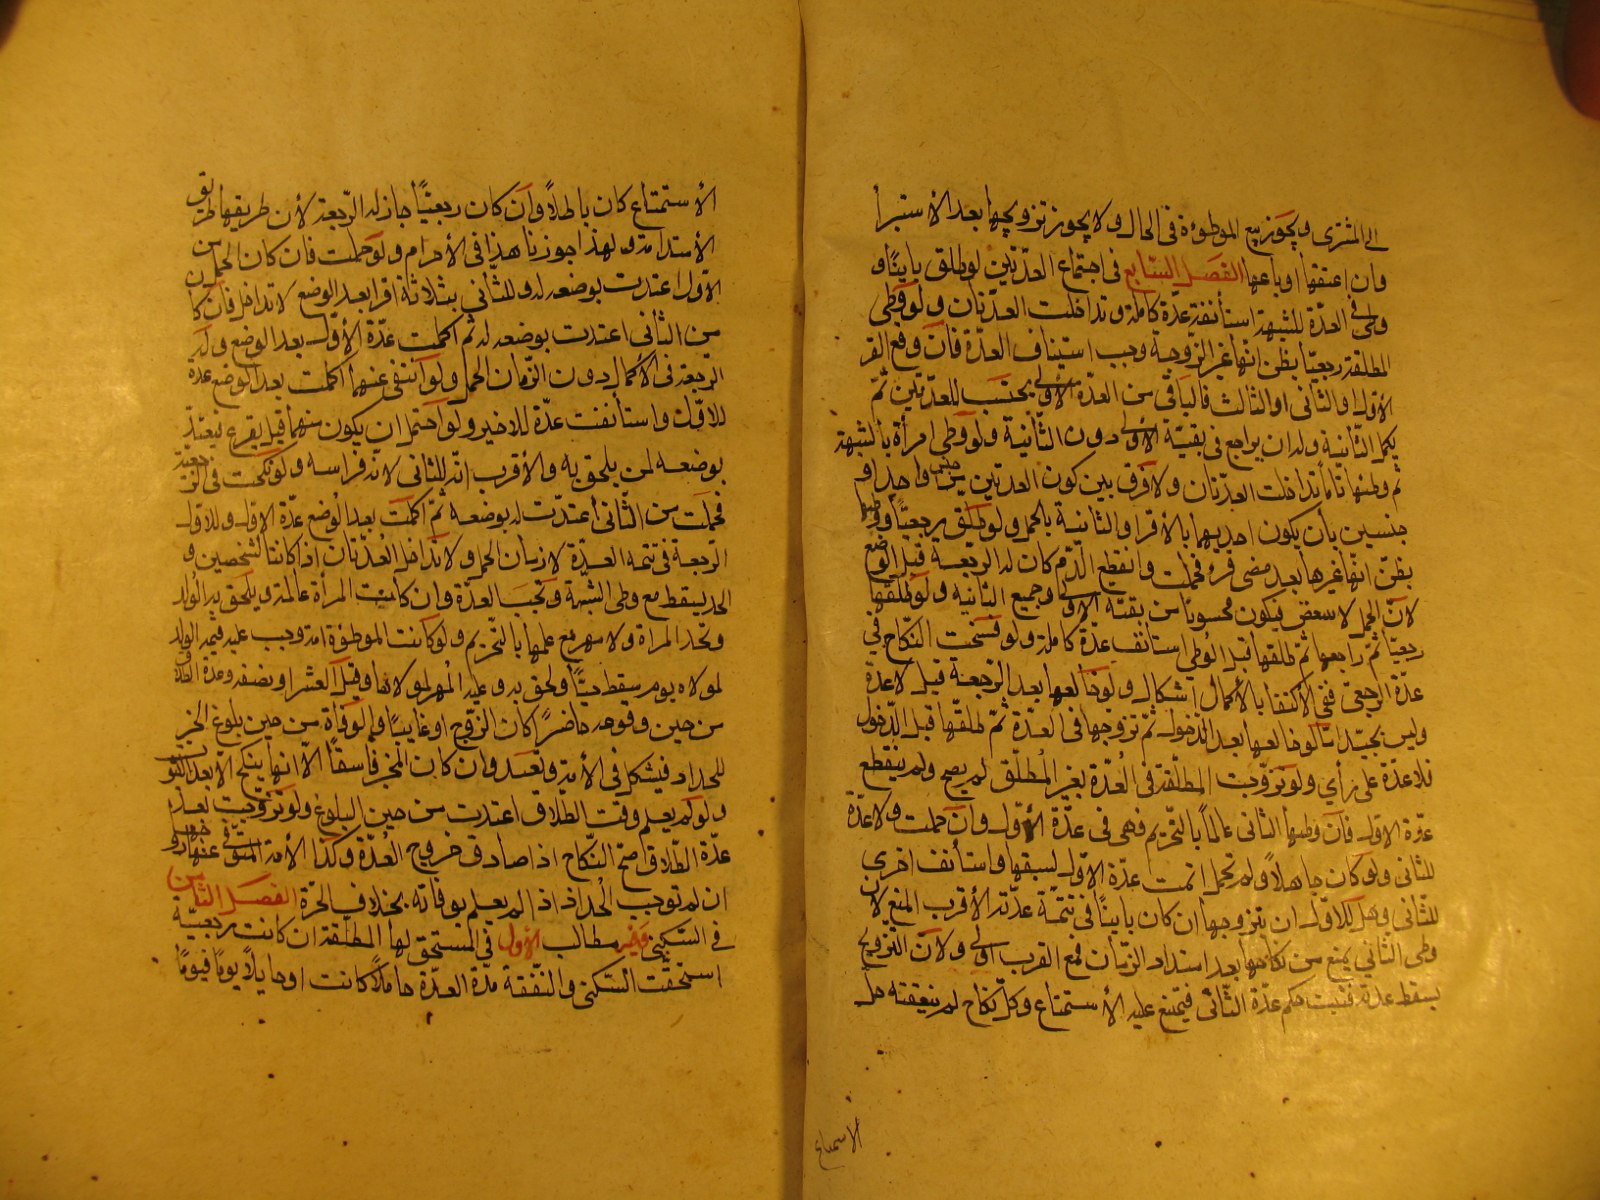 الى المشترى ويجوز بيع الموطوءة فى الحال ولا يجوز تزويجها بعد الاستبرأ
وان اعتقها او باعها الفصل السابع فى اجتماع العدّتين لو طلق باينًا و
وطى فى العدّة للشبهة استأنفت عدّة كاملة وتداخلت العدّتان ولو وطى
المطلقة رجعيّا بظن انها غير الزوجة وجب استيناف العدّة فان وقع القر
الأول او الثانى او الثالث فالباقى من العدّة الأولى يحتسب للعدّتين ثمّ
يكمل الثانية وله ان يراجع فى بقيّة الأولى دون الثانية ولو وطى امرأة بالشبهة
ثم وطئها تاماً تداخلت العدّتان ولا فرق بين كون العدتين من جنس واحد او
جنسين بأن يكون احديهما بالأقرا والثانية بالحمل ولو طلق رجعيّا ووطئها
بظنّ انّها غيرها بعد مضى قرء فحملت وانقطع الدّم كان له الرّجعة قبل الوضع
لانّ الحمل لا يتبعض فيكون محسوباً من بقيّة الأولى وجميع الثانية ولو طلقها
رجعيّا ثمّ راجعها ثمّ طلقها قبل الوطى استأنف عدّة كاملة ولو فسخت النكاح فى
عدّة الرجعى ففى الأكتفا بالأكمال اشكال ولو خالعها بعد الرّجعة قيل لا عدّة
وليس بجيّد امّا لو خالعها بعد الدّخول ثمّ تزوجها فى العدّة ثمّ طلقها قبل الدّخول
فلا عدّة على رأي ولو تزوّجت المطلّقة فى العدّة بغير المُطلّق لم يصح ولم ينقطع
عدّة الاول فان وطيها الثانى عالماً بالتّحريم فهى فى عدّة الأوّل وان حملت ولا عدّة
للثانى ولو كان جاهلاً ولم تحمل اتمت عدّة الاوّل لسبقها واستأنف اخرى
للثّانى وهل للاوّل ان يتزوجها ان كان باينًا فى تتمّة عدّته الأقرب المنع لان
وطى الثّاني يمنع من نكاحها بعد امتداد الزّمان فمع القرب اولى ولانّ التّزويج
يسقط عدّته فيثبت حكم عدّة الثّانى فيمتنع عليه الأستمتاع وكلّ نكاح لم يتعقّبه حلّ
الاستمتاع
الأستمتاع كان باطلاً وان كان رجعيّاً جاز له الرّجعة لأن طريقها طريق
الأستدامة ولهذا جوزنا هذا فى الأحرام ولو حملت فان كان الحمل من
الاوّل اعتدت بوضعه له وللثّانى بثلاثة اقرا بعد الوضع لا تداخل فان كان
من الثانى اعتدت بوضعه له ثم اكملت عدّة الأوّل بعد الوضع وله
الرّجعة فى الأكمال دون الزّمان الحمل ولو انتفى عنهما اكملت بعد الوضع عدة
للاوّل واستأنفت عدّة للاخير ولو احتمل ان يكون منهما قيل يقرع فيعتدّ
بوضعه لمن يلحق به والأقرب انّه للثانى لانّه فراشه ولو نكحت فى الرّجعية
فحملت من الثّانى اعتدّت له بوضعه ثمّ اكملت بعد الوضع عدّة الاوّل وللاوّل
الرّجعة فى تتمة العدّة لا زمان الحمل ولا تداخل العُدّتان اذا كانتا لشخصين و
الحد يسقط مع وطى الشّبهة وتجب العدّة وان كانت المرأة عالمة ويلحق به الولد
وتحّد المراة ولا مهر مع علمها بالتّحريم ولو كانت الموطوّة امة وجب عليه قيمة الولد
لمولاه يوم سقط حيّاً ولحق به وعليه المهر لمولاها وقيل العشر او نصفه وعدة الطلاق
من حين وقوعه حاضرًا كان الزّوج او غايبًا والوفاة من حين بلوغ الخبر
للحداد فيشكل فى الأمة وتعتد وان كان المخبر فاسقاً الّا انها ينكح الّا بعد الثبوت
ولو لم يعلم وقت الطلاق اعتدت من حين البلوغ ولو تزوّجت بعد
عدّة الطّلاق صحّ النّكاح اذا صادف خروج العُدّة وكذا الأمة المتوّفى عنها زوجها و
ان لم توجب الحداد اذ الم يعلم بوفاته بخلاف الحرّة الفصل الثامن
فى السّكنى وفيه مطالب الأول فى المستحق لها المطلّقة ان كانت رجعيّة
استحقّت السّكنى والنّفقة مدّة العدّة حاملاً كانت او حايلاً يوماً فيوماً